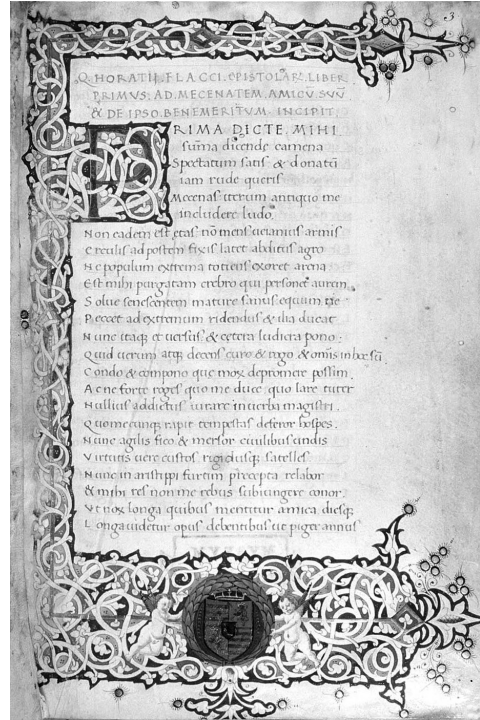 3
Q. HORATII. FLACCI. EPISTOLAR. LIBER.
PRIMUS. AD. MECENATEM. AMICŪ. SUŪ
& DE IPSO. BENEMERITUM. INCIPIT
PRIMA DICTE. MIHI
sūma dicende camena
Spectatum satis & donatū
iam rude queris
Mecenas iterum antiquo me
includere ludo.
Non eadem est etas: nō mens: veianius armis
Herculis ad postem fixis latet abditus agro
Ne populum extrema totiens exoret arena
Est mihi purgatam crebro qui personet aurem
Solue senescentem mature sanus equum ne
Peccet ad extremum ridendus & ilia ducat
Nunc itaq; et uersus & cetera ludicra pono:
Quid uerum atq; decens curo & rogo & omīs in hoc sū.
Condo & compono que mox depromere possim.
Ac ne forte roges quo me duce, quo lare tuter
Nullius addictus iurare in uerba magistri.
Quomecunq; rapit tempestas deferor hospes.
Nunc agilis fio & mersor ciuilibus undis
Virtutis uere custos, rigidusq; satelles.
Nunc in aristippi furtim precepta relabor
& mihi res non me rebus subiungere conor.
Vt nox longa quibus mentitur amica diesq;
Longa uidetur opus debentibus ut piger annus